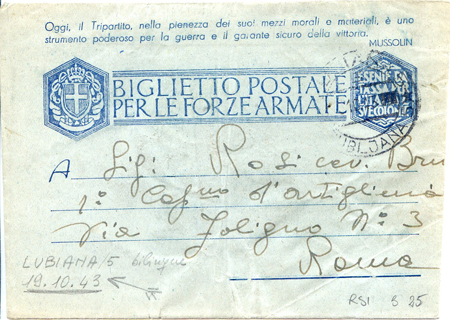 Oggi, il Tripartito, nella pienezza dei suoi mezzi morali e materiali, è uno
strumento poderoso per la guerra e il garante sicuro della vittoria.
MUSSOLIN
BIGLIETTO POSTALE
PER LE FORZE ARMATE
ESENTE DA
TASSA PER
SECOLO
LUBLJANA
A Sig. Rosi cav. Bru
1° Capno d'artiglieria
Via Foligno N° 3
Roma
LUBIANA/5 bilingue
19.10.43
RSI S 25